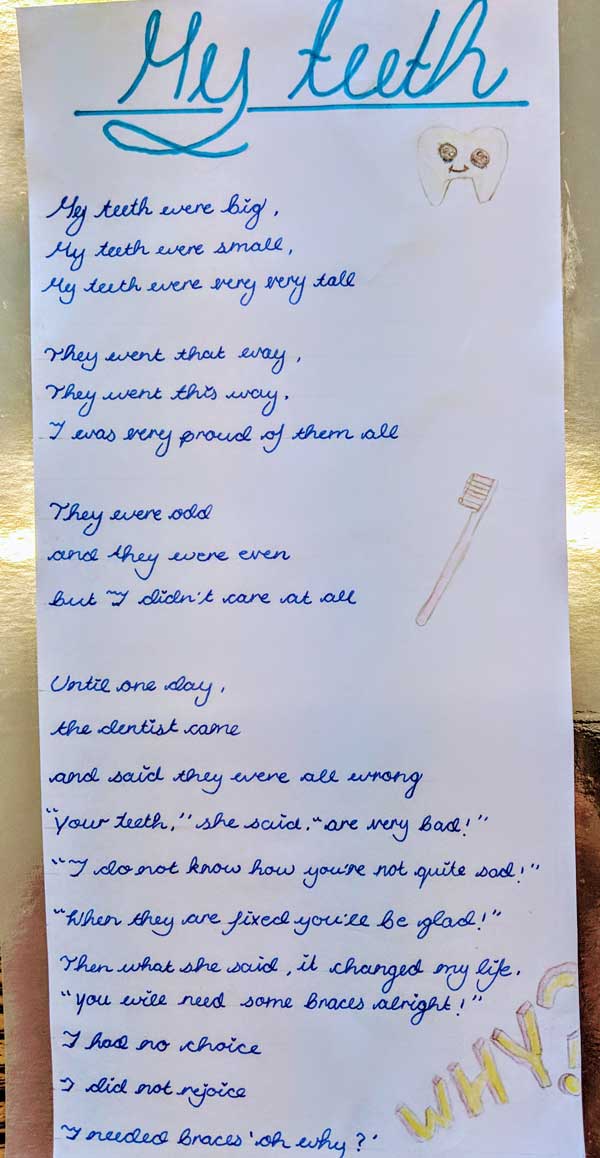 My teeth
My teeth were big,
My teeth were small,
My teeth were very very tall
They went that way,
They went this way.
I was very proud of them all
They were odd
and they were even
but I didn't care at all
Until one day,
the dentist came
and said they were all wrong
"Your teeth," she said, "are very bad!"
"I do not know how you're not quite sad!"
"When they are fixed you'll be glad!"
Then what she said, it changed my life.
"you will need some braces alright!"
I had no choice
I did not rejoice
I needed braces 'oh why?'
WHY?!